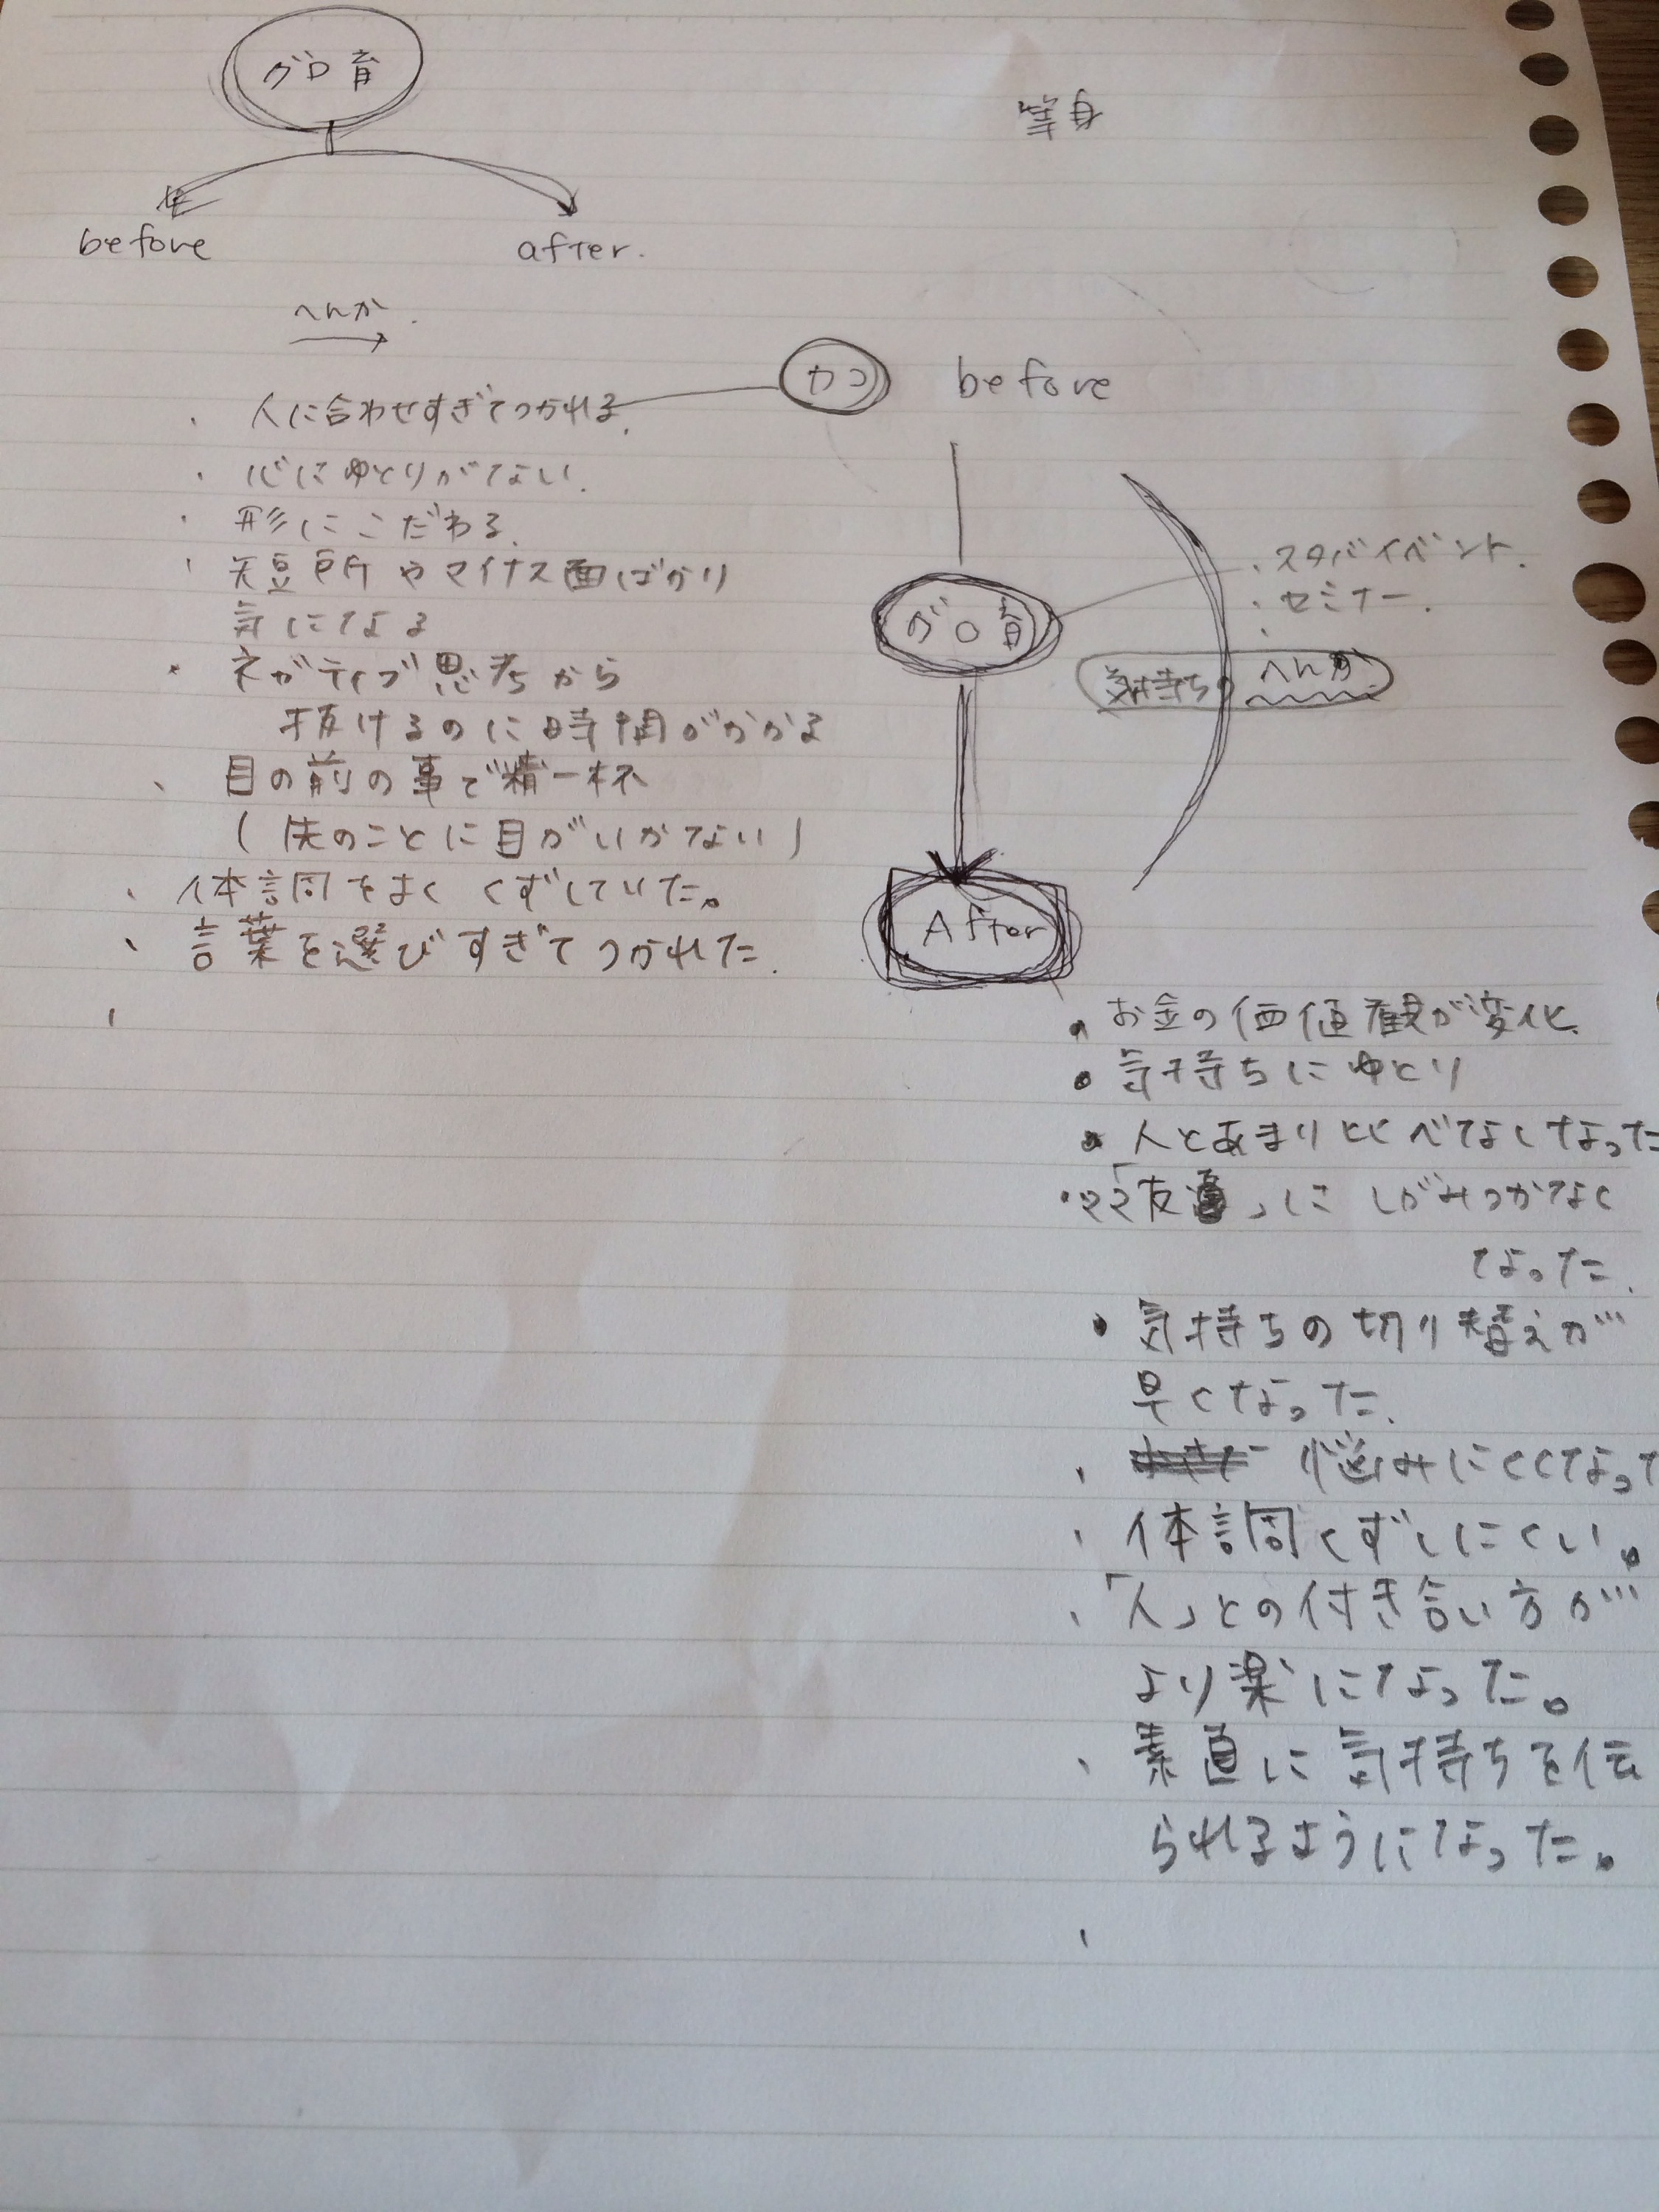 グロ育
等身
before
after.
へんか
カコ
before
・人に合わせすぎてつかれる.
・心にゆとりがない.
・形にこだわる.
・短所やマイナス面ばかり
気になる
・ネガティブ思考から
抜けるのに時間がかかる
・目の前の事で精一杯
(先のことに目がいかない)
・体調をよくくずしていた。
・言葉を選びすぎてつかれた.
グロ育
・スタバイベント.
・セミナー.
気持ちの へんか
After
・お金の価値観が変化.
・気持ちにゆとり
・人とあまり比べなくなった
・ママ「友」にしがみつかなく
なった.
・気持ちの切り替えが
早くなった.
・悩みにくくなって
・体調くずしにくい。
・「人」との付き合い方が
より楽になった。
・素直に気持ちを伝
られるようになった。